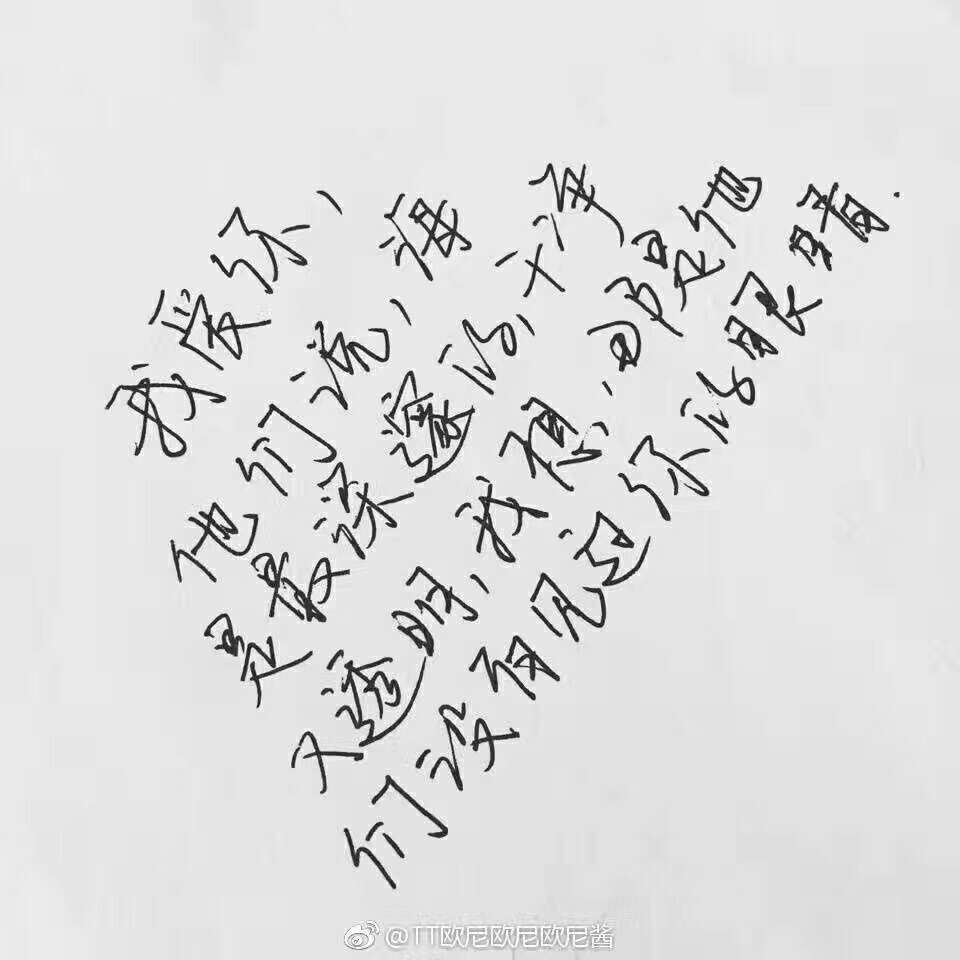 我爱你、
他们说、海
是最深邃的、干净
又透明、我想、那是他
们没有见过你的眼睛.
@TT欧尼欧尼欧尼酱